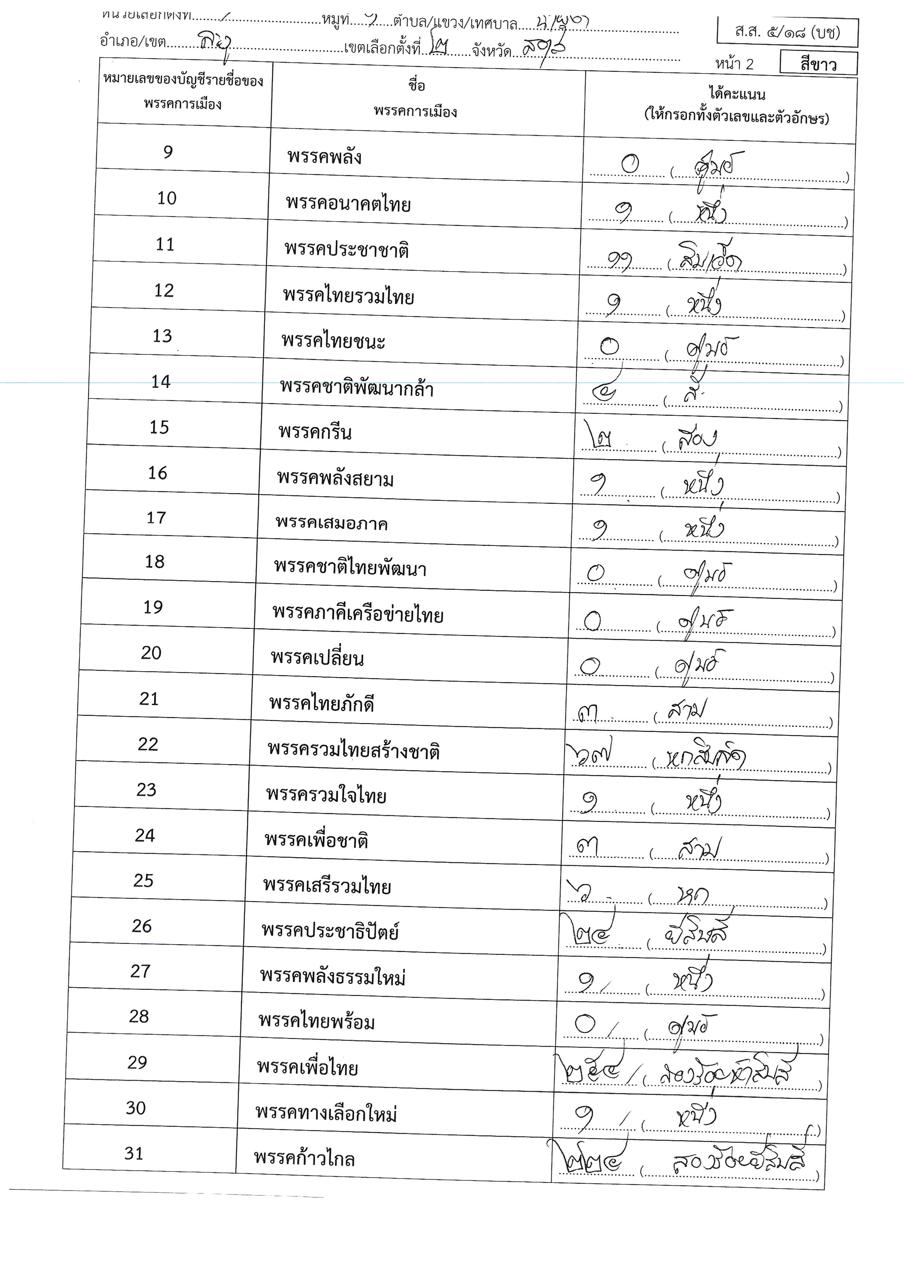 หน่วยเลือกตั้งที่ / หมู่ที่ ๖ ตำบล/แขวง/เทศบาล
ส.ส. ๕/๑๘ (บช)
อำเภอ/เขต ละงู เขตเลือกตั้งที่ ๒ จังหวัด สตูล
หน้า 2 สีขาว
หมายเลขของบัญชีรายชื่อของพรรคการเมือง ชื่อพรรคการเมือง ได้คะแนน (ให้กรอกทั้งตัวเลขและตัวอักษร)
9 พรรคพลัง ๐ (ศูนย์)
10 พรรคอนาคตไทย ๑ (หนึ่ง)
11 พรรคประชาชาติ ๑๑ (สิบเอ็ด)
12 พรรคไทยรวมไทย ๑ (หนึ่ง)
13 พรรคไทยชนะ ๐ (ศูนย์)
14 พรรคชาติพัฒนากล้า ๔ (สี่)
15 พรรคกรีน ๒ (สอง)
16 พรรคพลังสยาม ๑ (หนึ่ง)
17 พรรคเสมอภาค ๑ (หนึ่ง)
18 พรรคชาติไทยพัฒนา ๐ (ศูนย์)
19 พรรคภาคีเครือข่ายไทย ๐ (ศูนย์)
20 พรรคเปลี่ยน ๐ (ศูนย์)
21 พรรคไทยภักดี ๓ (สาม)
22 พรรครวมไทยสร้างชาติ ๖๗ (หกสิบเจ็ด)
23 พรรครวมใจไทย ๑ (หนึ่ง)
24 พรรคเพื่อชาติ ๓ (สาม)
25 พรรคเสรีรวมไทย ๖ (หก)
26 พรรคประชาธิปัตย์ ๒๔ (ยี่สิบสี่)
27 พรรคพลังธรรมใหม่ ๑ (หนึ่ง)
28 พรรคไทยพร้อม ๐ (ศูนย์)
29 พรรคเพื่อไทย ๒๕๔ (สองร้อยห้าสิบสี่)
30 พรรคทางเลือกใหม่ ๑ (หนึ่ง)
31 พรรคก้าวไกล ๒๒๔ (สองร้อยยี่สิบสี่)